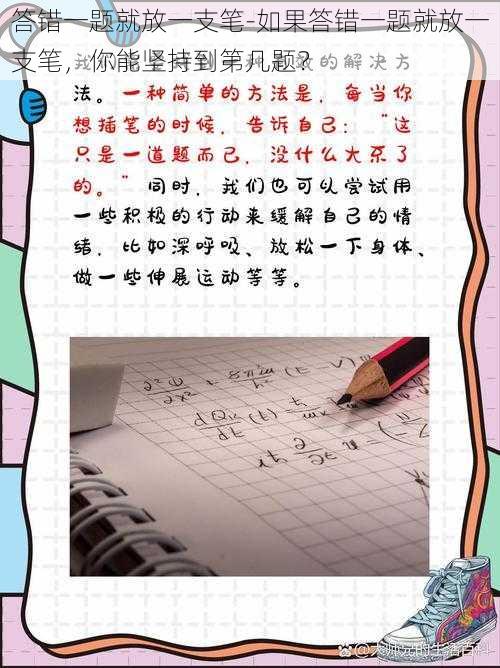 答错一题就放一支笔-如果答错一题就放一
支笔，你能坚持到第几题？
的解决方
法。一种简单的方法是，每当你
想插笔的时候，告诉自己：“这
只是一道题而已，没什么大不了
的。”同时，我们也可以尝试用
一些积极的行动来缓解自己的情
绪，比如深呼吸、放松一下身体、
做一些伸展运动等等。
@大师兄的生活百科